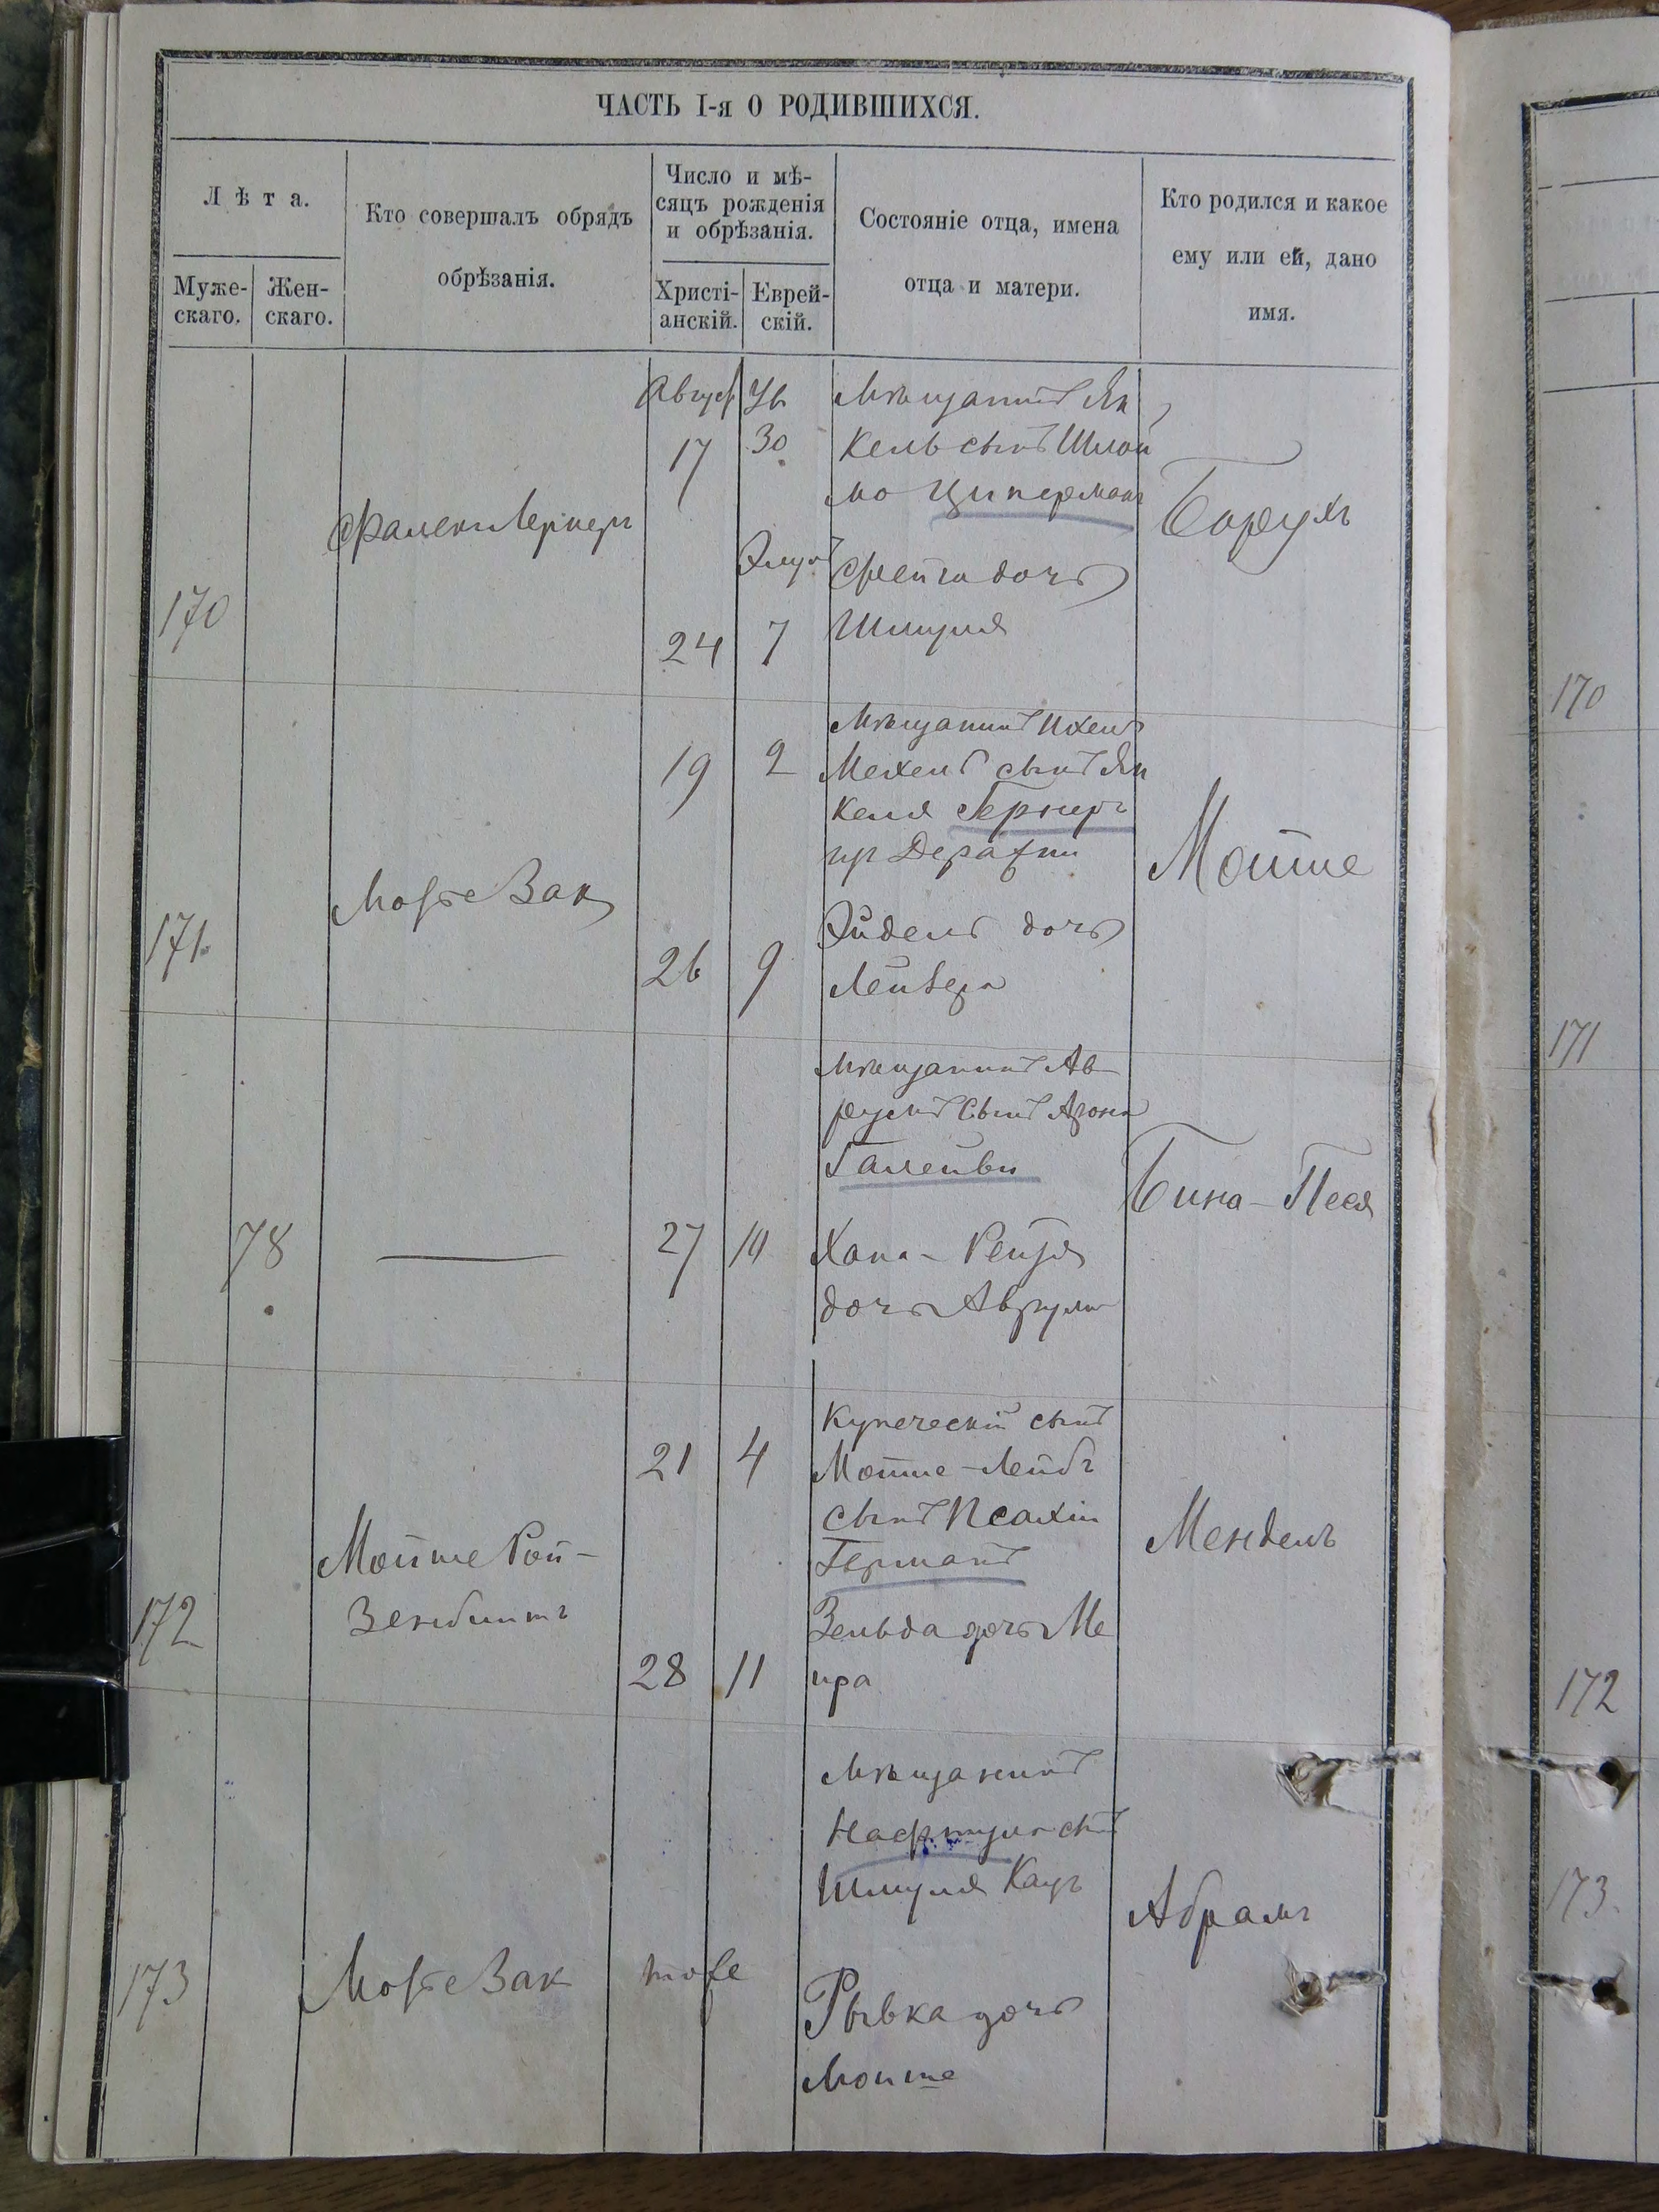 ЧАСТЬ I-я О РОДИВШИХСЯ.
Лѣта.
Муже-
скаго.
Жен-
скаго.
Кто совершалъ обрядъ
обрѣзанія.
Число и мѣ-
сяцъ рожденія
и обрѣзанія.
Христі-
анскій.
Еврей-
скій.
Состояніе отца, имена
отца и матери.
Кто родился и какое
ему или ей, дано
имя.
170
Лернеръ
Август
17
24
30
Элулъ
7
Мѣщанинъ Ян
кель сынъ Шлой
мо Циперманъ
Фейга дочь
Шмуля
Борухъ
171
Мотье Зак
19
26
2
9
Мѣщанинъ Ихель
Мехель сынъ Ян
келя Гернеръ
Эйдель дочь
Лейзера
Мойше
78
27
10
Мѣщанинъ Ав
румъ сынъ Арона
Хана-Рейзя
дочь Аврума
Бина-Песя
172
Мойше Рой-
зенблитъ
21
28
4
11
Купеческій сынъ
Мойше-Лейбъ
сынъ Псахіи
Германъ
Зельда дочь Ме
ира
Мендель
173
Мотье Зак
тоже
Мѣщанинъ
Нафтула сынъ
Шмуля Кацъ
Рывка дочь
Мойше
Абрамъ
170
171
172
173